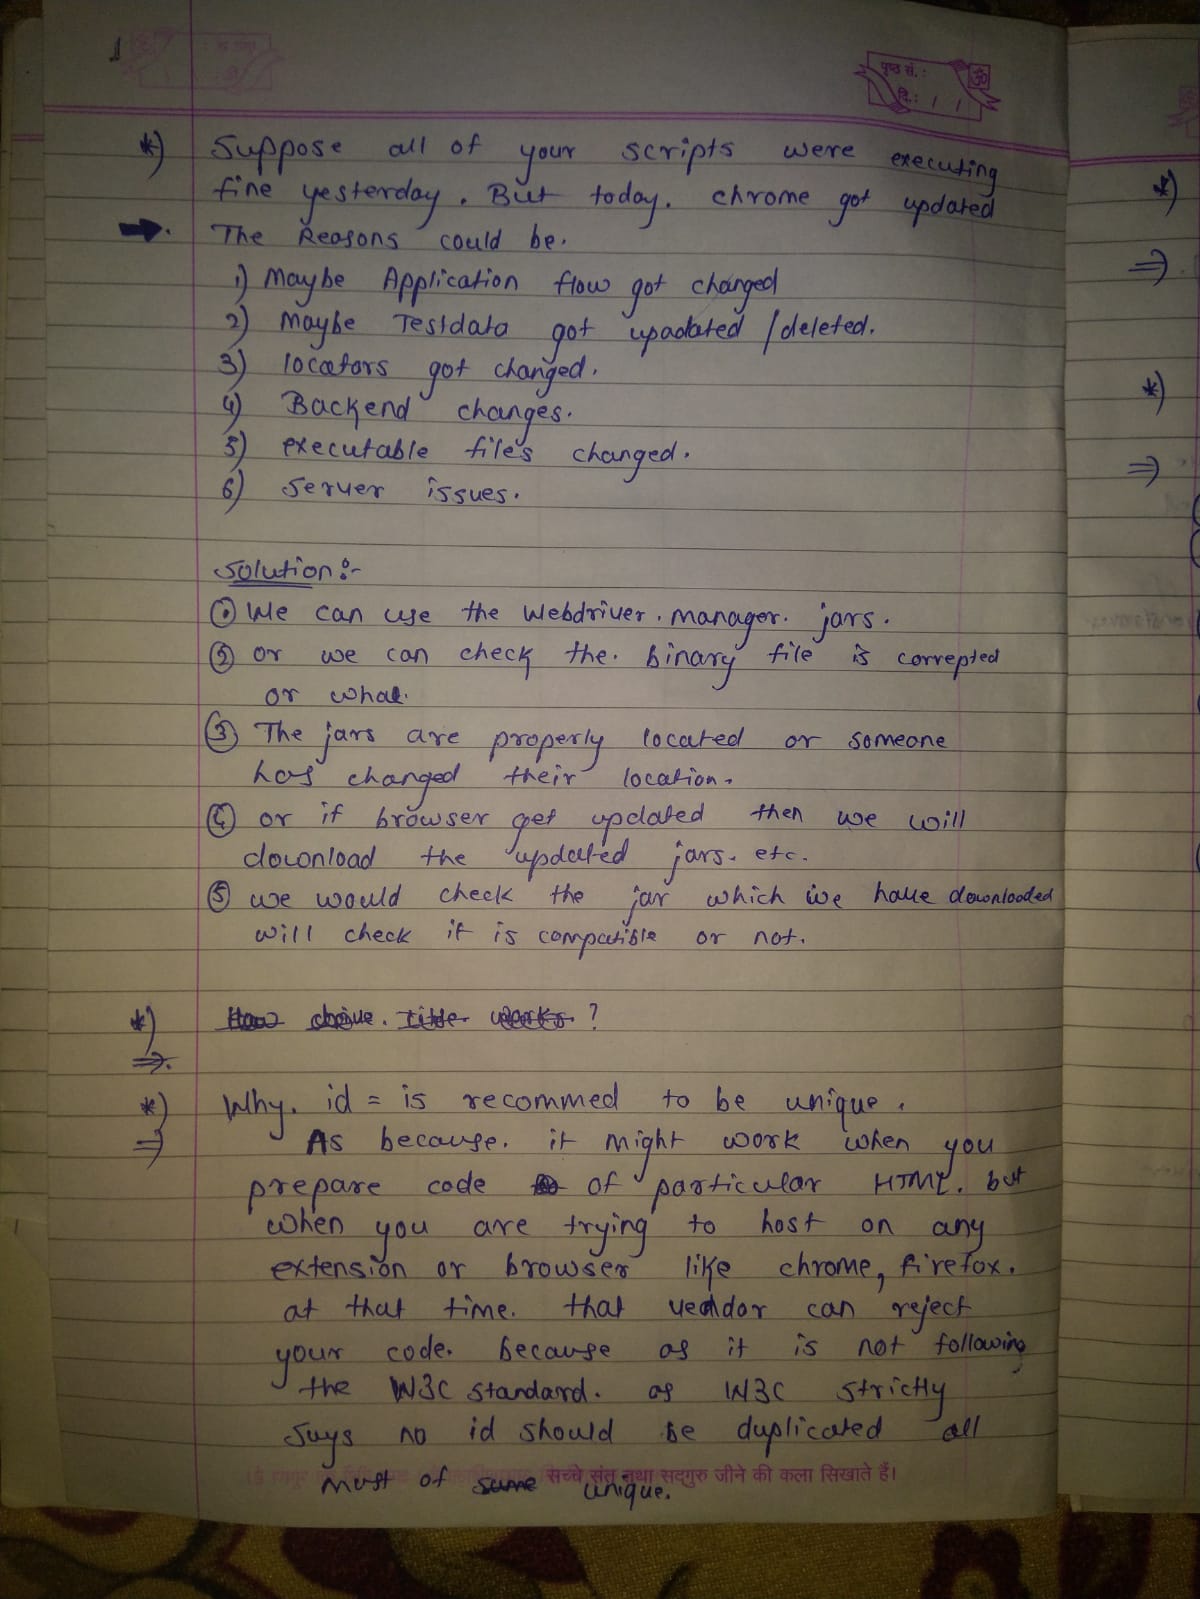 पृष्ठ सं.:
दि.: / /
*) Suppose all of your scripts were executing
fine yesterday. But today. chrome got updated
➡. The Reasons could be.
1) Maybe Application flow got changed
2) Maybe Testdata got upadated / deleted.
3) locators got changed.
4) Backend changes.
5) executable files changed.
6) Server issues.
Solution:-
① We can use the Webdriver. manager. jars.
② or we can check the. binary file is correpted
or what.
③ The jars are properly located or someone
has changed their location.
④ or if browser get updated then we will
download the updated jars. etc.
⑤ we would check the jar which we have downloaded
will check it is compatible or not.
*) How drive. title. works. ?
⇒.
*) Why. id = is recommed to be unique.
⇒ As because. it might work when you
prepare code of particular HTML. but
when you are trying to host on any
extension or browser like chrome, firefox.
at that time. that veddor can reject
your code. because as it is not following
the W3C standard. as W3C strictly
says no id should be duplicated all
must of same unique.
सच्चे संत तथा सद्गुरु जीने की कला सिखाते हैं।
*)
⇒
*)
⇒